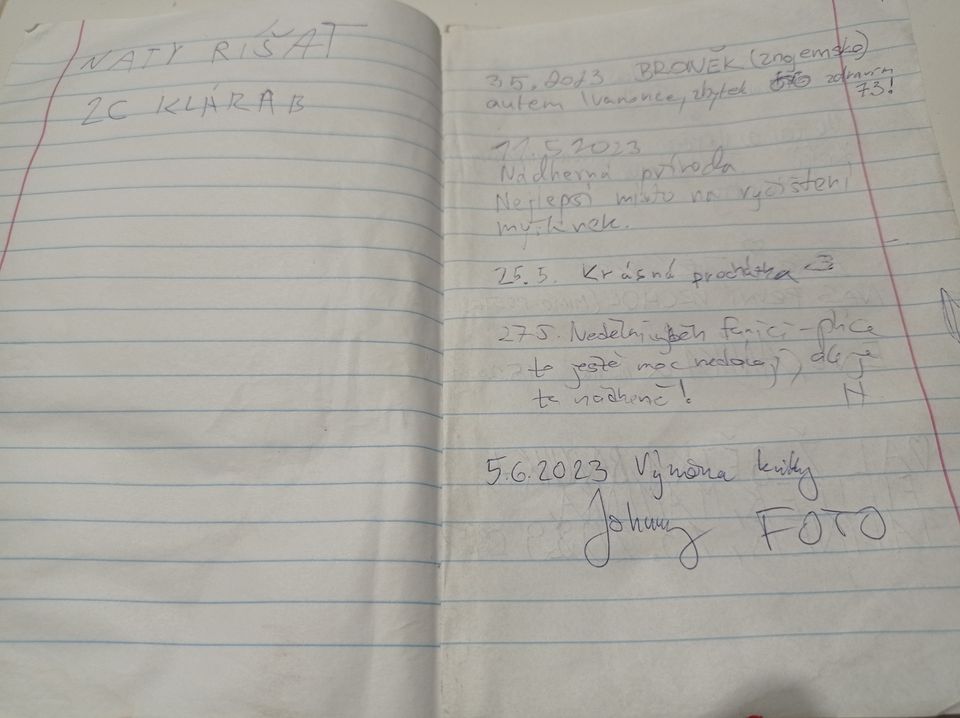 NATY RIŠAT
2C KLÁRA B
3.5.2023 BRONĚK (znojemsko)
autem Ivanonce, zbytek zdravím
73!
11.5.2023
Nádherná příroda
Nejlepší místo na vyčištění
myšlenek.
25.5. Krásná procházka <3
27.5. Nedělní výběh funící - plíce
to ještě moc nedávají, ale je
to nádherné!
H.
5.6.2023 Výměna knihy
Johnny FOTO